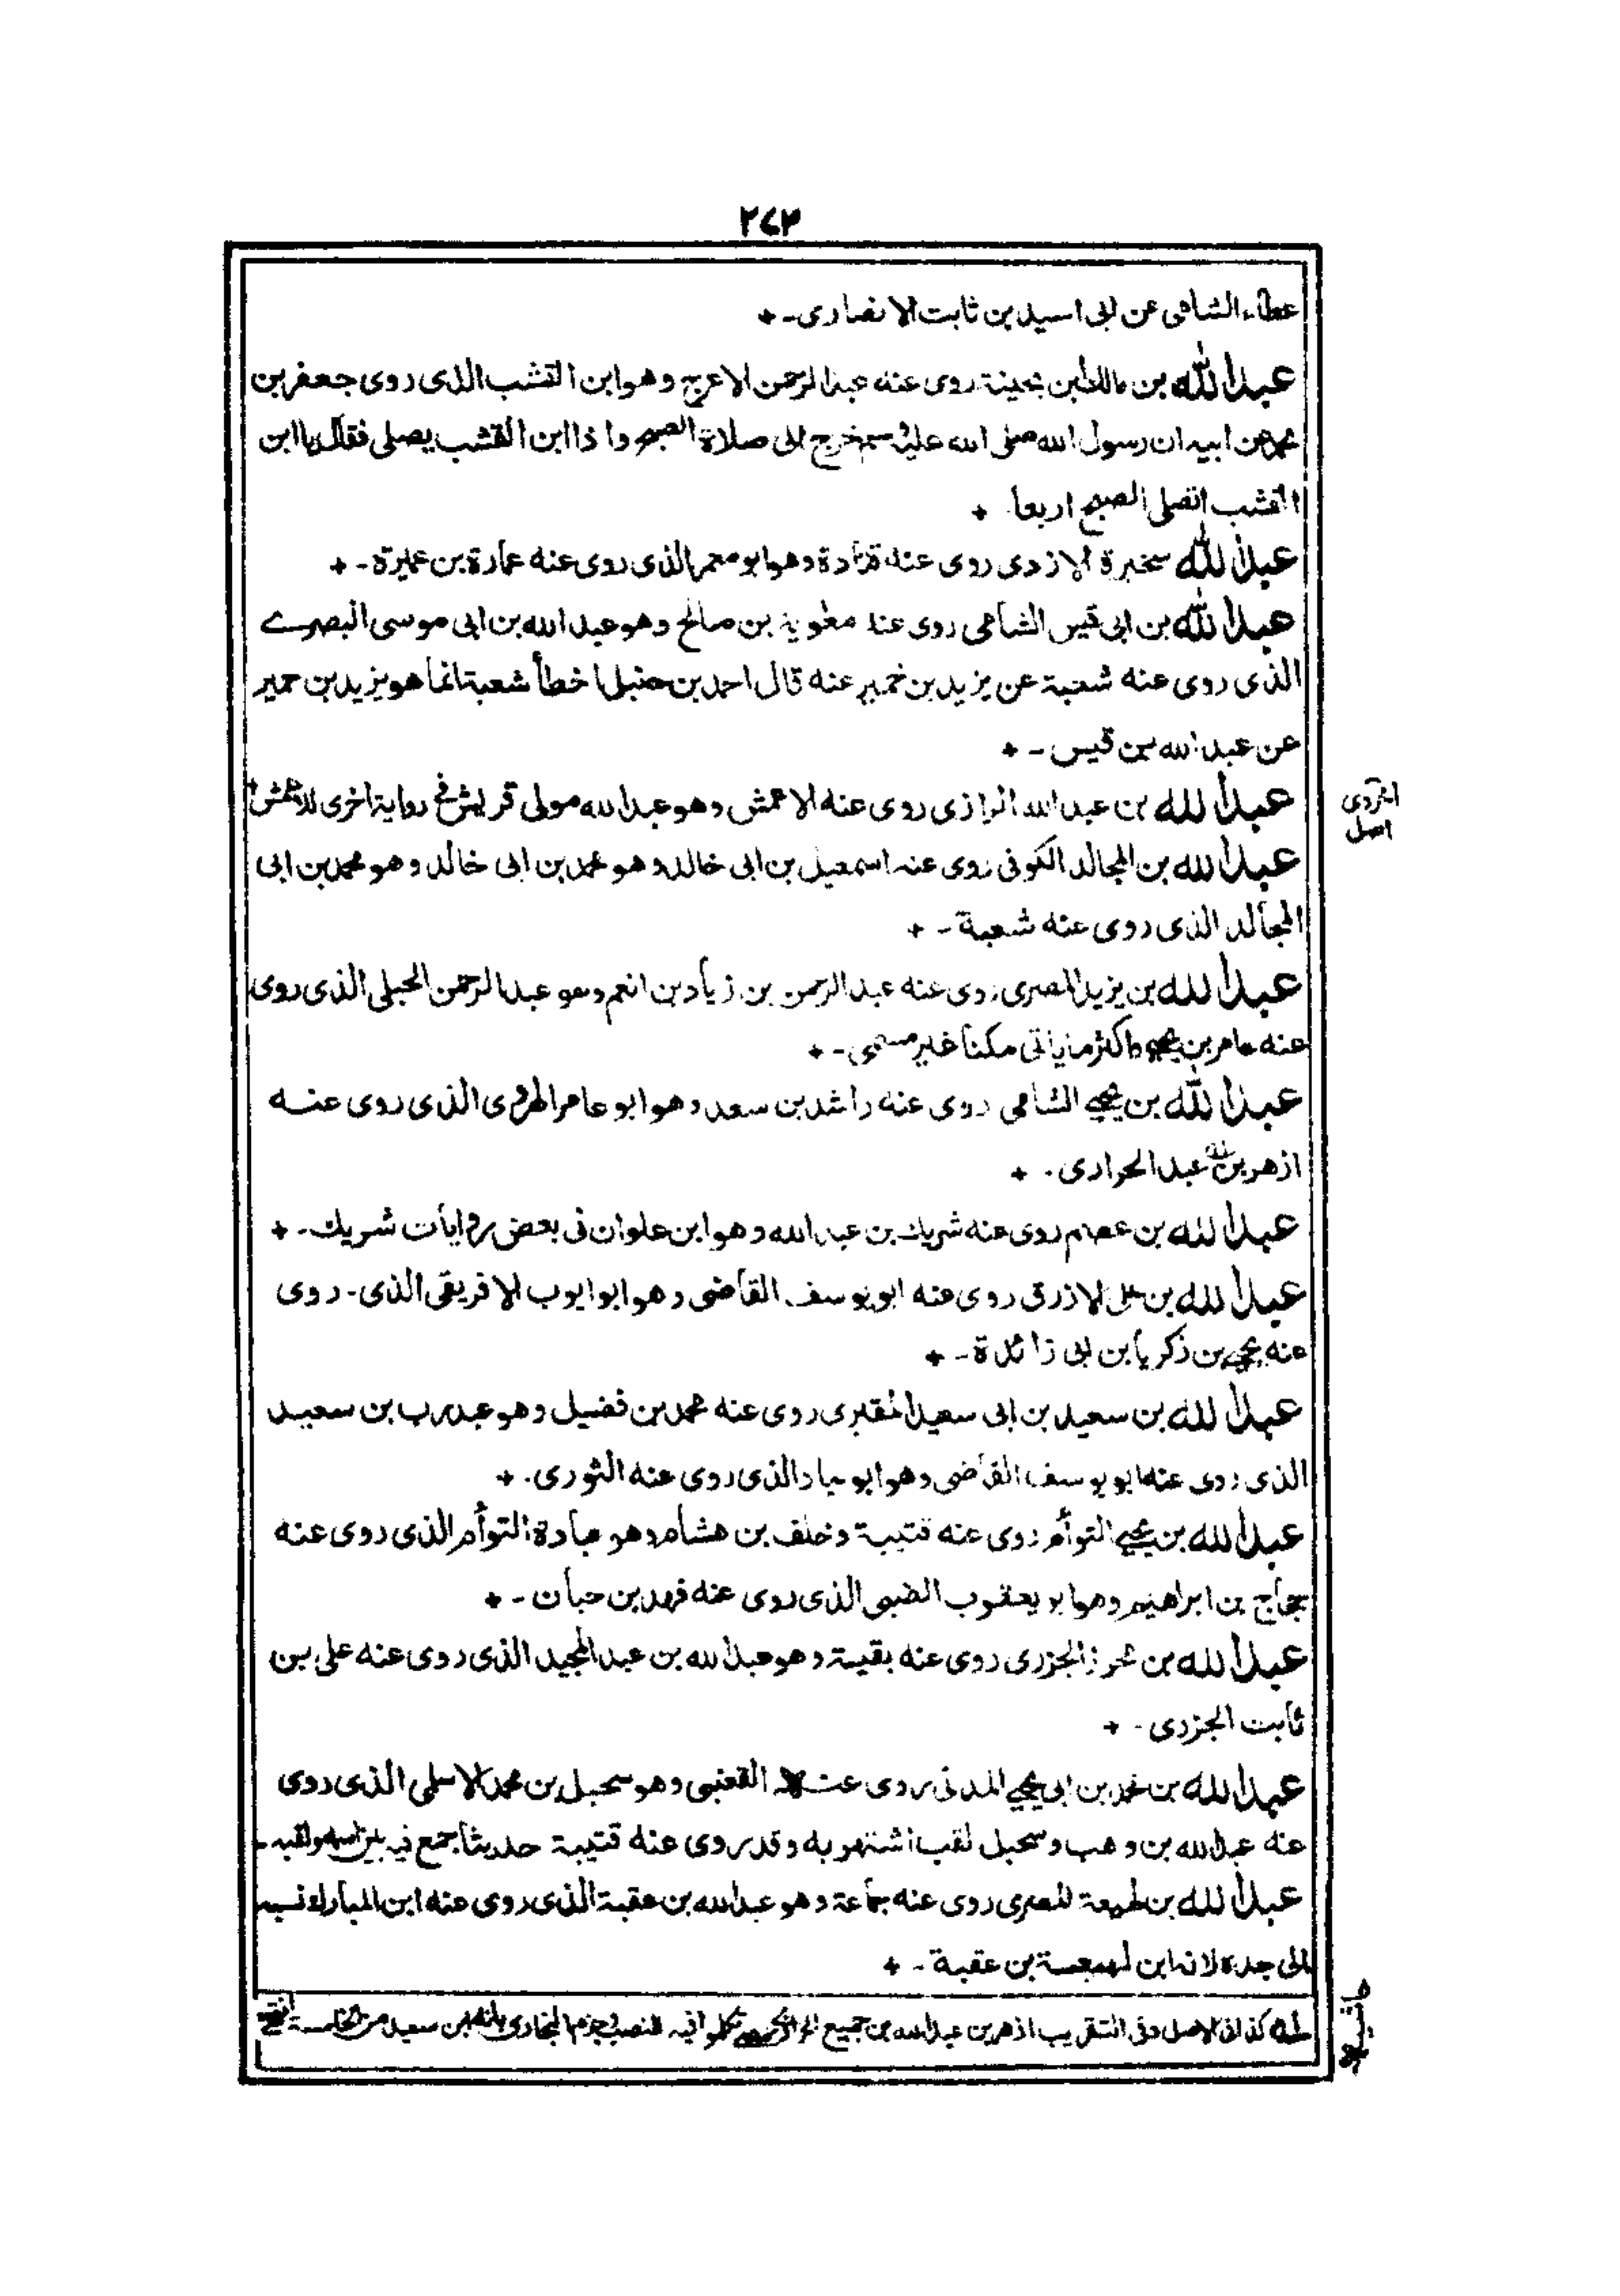 ٢٧٣
عطاء الشامی عن ابی اسید بن ثابت الانصاری۔ +
عبد الله بن مالك ابن بحینة روی عنه عبد الرحمن الاعرج وهو ابن القشب الذی روی جعفر بن
محمد عن ابیه ان رسول الله صلی الله علیه سلم خرج الی صلاة الصبح واذا ابن القشب یصلی فقال یا ابن
القشب اتصلی الصبح اربعا +
عبد الله سخبرة الازدی روی عنه قتادة وهو ابو معمر الذی روی عنه عمارة بن عمیرة۔ +
عبد الله بن ابی قیس الشامی روی عنه معاویة بن صالح وهو عبد الله بن ابی موسی البصرے
الذی روی عنه شعبة عن یزید بن خمیر عنه قال احمد بن حنبل اخطأ شعبة انما هو یزید بن خمیر
عن عبد الله بن قیس۔ +
عبد الله بن عبد الله الرازی روی عنه الاعمش وهو عبد الله مولی قریش فی روایة اخری للاعمش +
عبد الله بن المجالد الکوفی روی عنه اسمعیل بن ابی خالد وهو محمد بن ابی خالد وهو محمد بن ابی
المجالد الذی روی عنه شعبة۔ +
عبد الله بن یزید المصری روی عنه عبد الرحمن بن زیاد بن انعم وهو عبد الرحمن الحبلی الذی روی
عنه عامر بن یحیی واکثر ما یاتی مکنا غیر مسمی۔ +
عبد الله بن یحیے الشامی روی عنه راشد بن سعد وهو ابو عامر الهوزی الذی روی عنه
ازهر بن عبد الحرازی۔ +
عبد الله بن عصام روی عنه شریك بن عبد الله وهو ابن علوان فی بعض روایات شریك۔ +
عبد الله بن علی الازرق روی عنه ابو یوسف القاضی وهو ابو ایوب الافریقی الذی۔ روی
عنه یحیے بن زکریا بن ابی زائدة۔ +
عبد الله بن سعید بن ابی سعید المقبری روی عنه محمد بن فضیل وهو عبد رب بن سعید
الذی روی عنه ابو یوسف القاضی وهو ابو عباد الذی روی عنه الثوری۔ +
عبد الله بن یحیے التوأم روی عنه قتیبة وخلف بن هشام وهو عبادة التوأم الذی روی عنه
حجاج بن ابراهیم وهو ابو یعقوب الضبی الذی روی عنه فهد بن حبان۔ +
عبد الله بن محرز الجزری روی عنه بقیة وهو عبد الله بن عبد المجید الذی روی عنه علی بن
ثابت الجزری۔ +
عبد الله بن محمد بن ابی یحیے المدنی روی عنه القعنبی وهو سحبل بن محمد الاسلمی الذی روی
عنه عبد الله بن وهب وسحبل لقب اشتهر به وقد روی عنه قتیبة حدیثا جمع فیه بین اسمه ولقبه۔
عبد الله بن لهیعة المصری روی عنه جماعة وهو عبد الله بن عقبة الذی روی عنه ابن المبارك نسبه
الی جده لانه ابن لهیعة بن عقبة۔ +
کذا فی الاصل وفی التقریب ازهر بن عبد الله بن جمیع الحرازی تکلموا فیه للنصب وجزم البخاری بانه ابن سعید من الخامسة
اصل